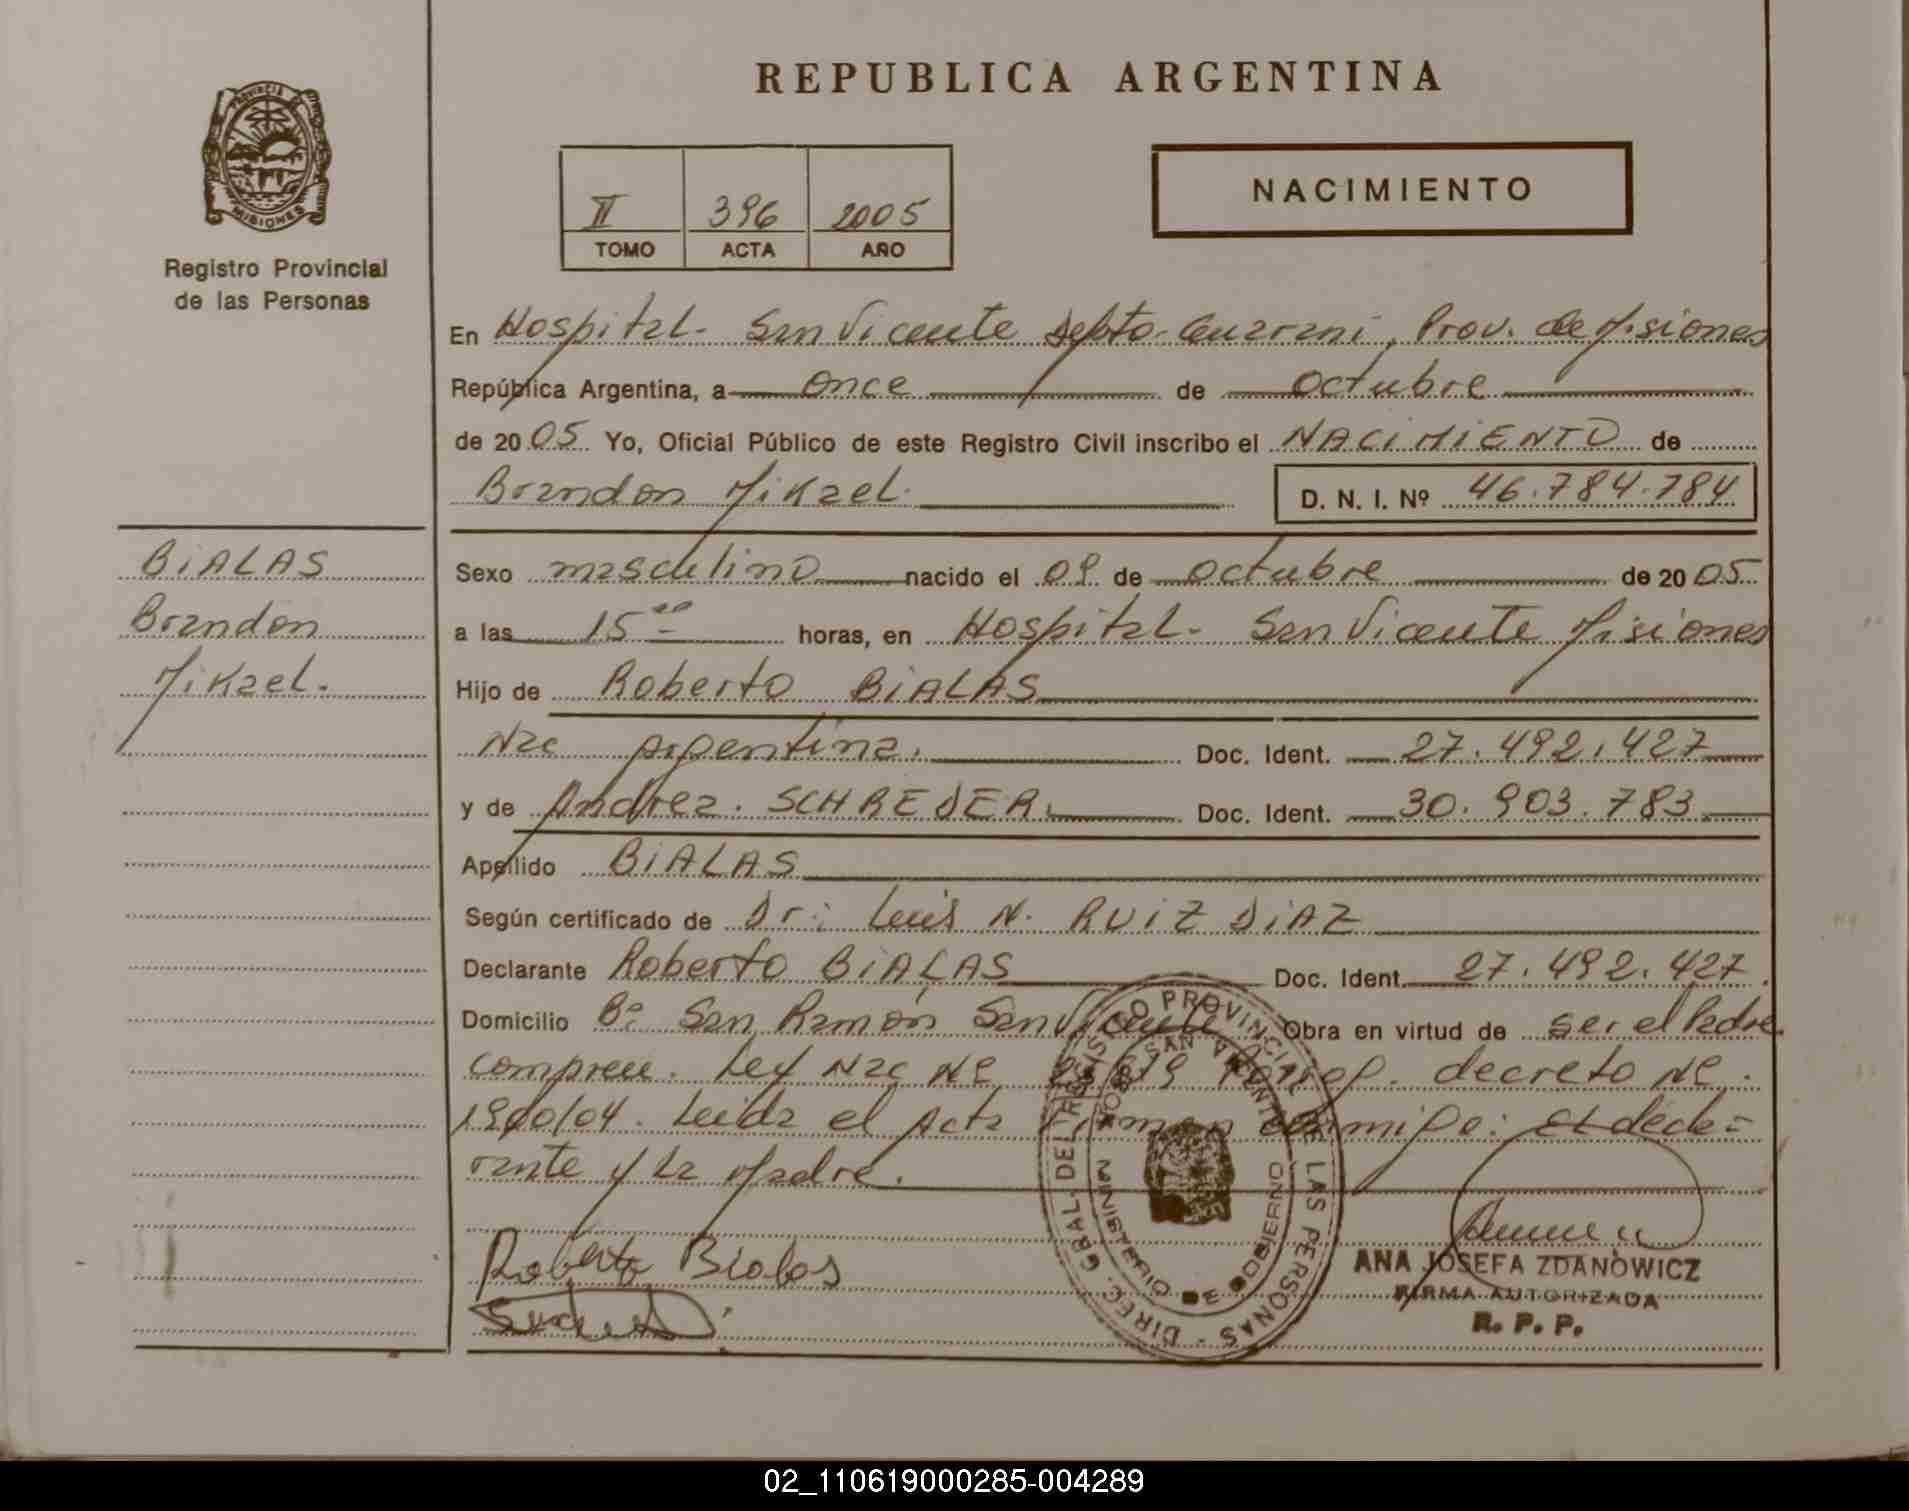 REPUBLICA ARGENTINA
PROVINCIA DE
MISIONES
Registro Provincial
de las Personas
II 396 2005
TOMO ACTA AÑO
NACIMIENTO
En Hospital - San Vicente Depto. Guarani, Prov. de Misiones
República Argentina, a once de octubre
de 2005 Yo, Oficial Público de este Registro Civil inscribo el NACIMIENTO de
Brandon Mikael.
D. N. I. Nº 46.784.784
BiALAS
Brandon
Mikael.
Sexo masculino nacido el 09 de octubre de 2005
a las 15 horas, en Hospital - San Vicente Misiones
Hijo de Roberto BiALAS
Nac Argentina. Doc. Ident. 27.492.427
y de Andrea. SCHREDER. Doc. Ident. 30.903.783
Apellido BiALAS
Según certificado de Dr: Luis N. RUiZ DiAZ
Declarante Roberto BiALAS Doc. Ident. 27.492.427.
Domicilio Bº San Ramón San Vicente Obra en virtud de ser el Padre
Ley Nac Nº decreto Nº.
Leida el Acta Firman conmigo: El decla=
rante y la Madre.
Roberto Bialas
DIREC. GRAL. DEL REGISTRO PROVINCIAL DE LAS PERSONAS
SAN VICENTE
MINISTERIO DE GOBIERNO
ANA JOSEFA ZDANOWICZ
FIRMA AUTORIZADA
R. P. P.
02_110619000285-004289